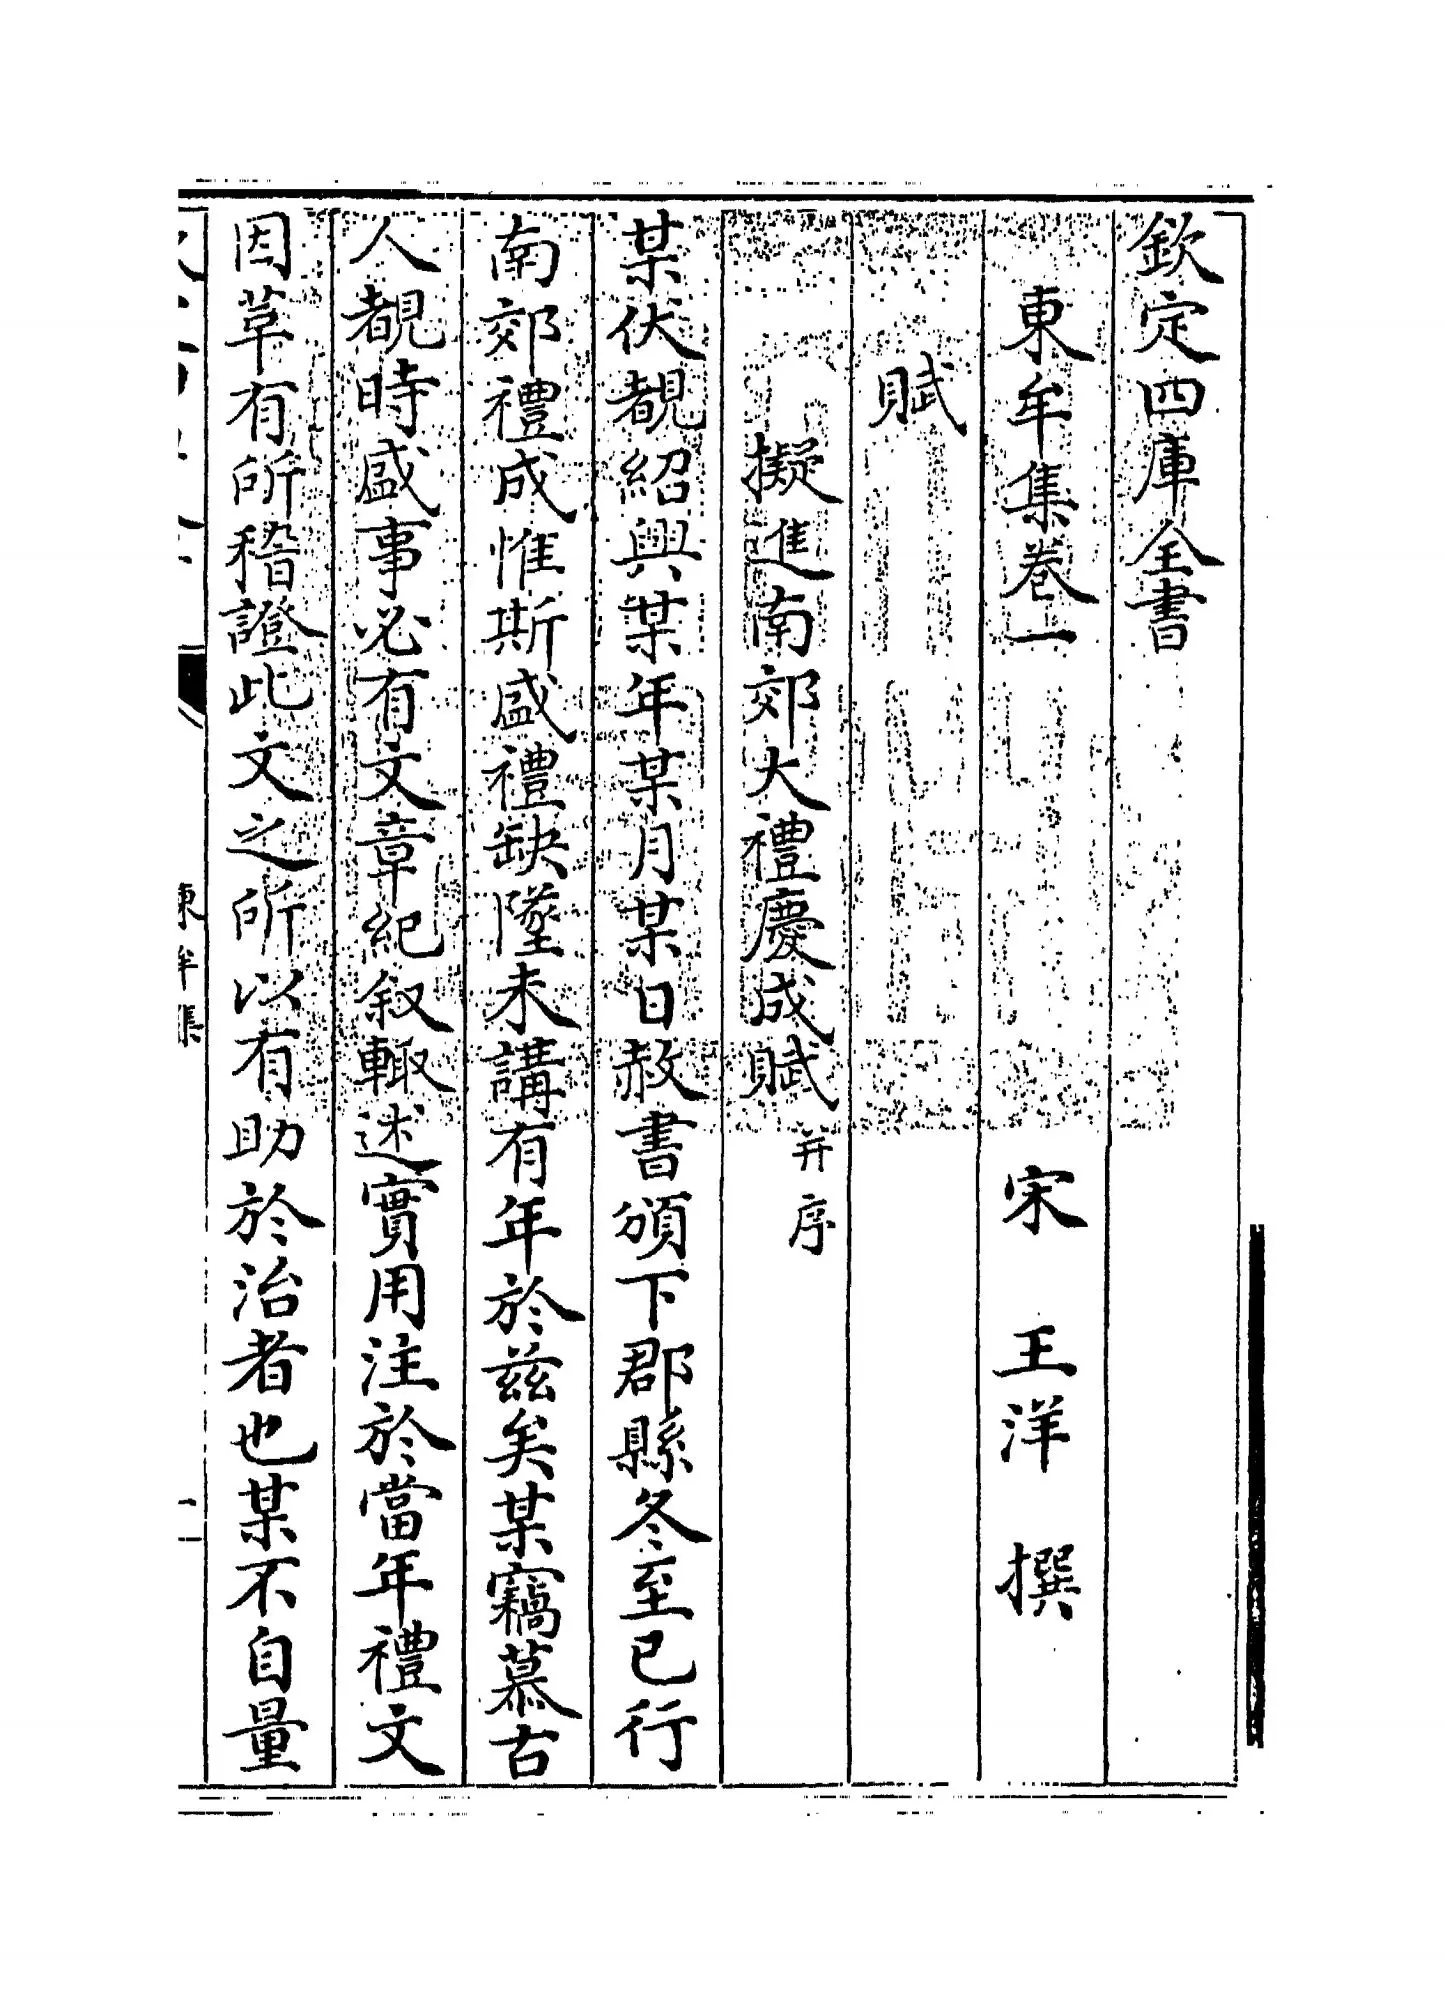 欽定四庫全書
東牟集卷一
宋 王洋 撰
賦
擬進南郊大禮慶成賦并序
某伏覩紹興某年某月某日赦書頒下郡縣冬至已行
南郊禮成惟斯盛禮缺墜未講有年於兹矣某竊慕古
人覩時盛事必有文章紀叙輙述實用注於當年禮文
因革有所稽證此文之所以有助於治者也某不自量
東牟集